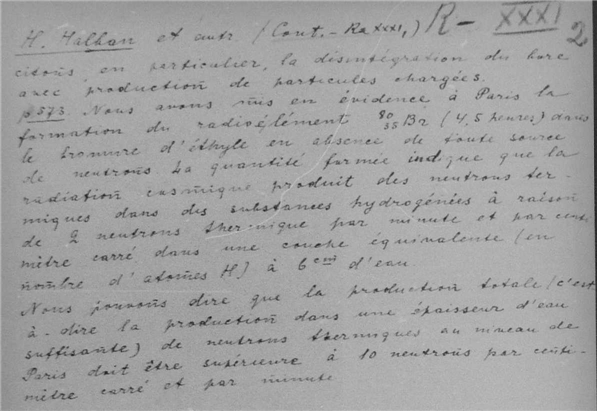 H. Halban et autr. (Cont. - Ra XXXI,) R - XXXI 2
citons, en particulier, la désintégration du bore
avec production de particules chargées.
p 573. Nous avons mis en évidence, à Paris la
formation du radioélément 80 35 Br (4,5 heures) dans
le bromure d'éthyle en absence de toute source
de neutrons La quantité formée indique que la
radiation cosmique produit des neutrons ther-
miques dans des substances hydrogénées à raison
de 2 neutrons thermique par minute et par centi
mètre carré dans une couche équivalente (en
nombre d'atomes H) à 6 cm d'eau.
Nous pouvons dire que la production totale (c'est
à-dire la production dans une épaisseur d'eau
suffisante) de neutrons thermiques au niveau de
Paris doit être supérieure à 10 neutrons par centi-
mètre carré et par minute